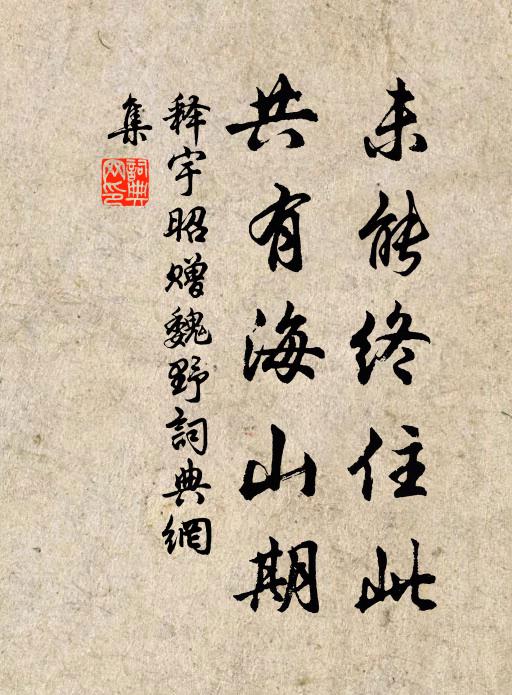 未能终住此
共有海山期
释宇昭赠魏野詞典網
集
詞典
网印